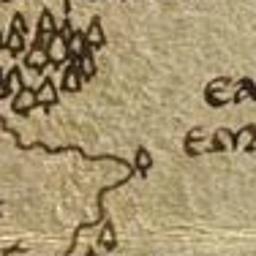 Ea
Em